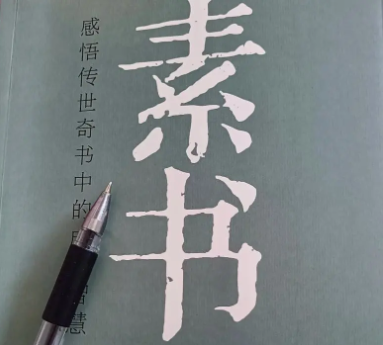 素书
感悟传世奇书中的 慧